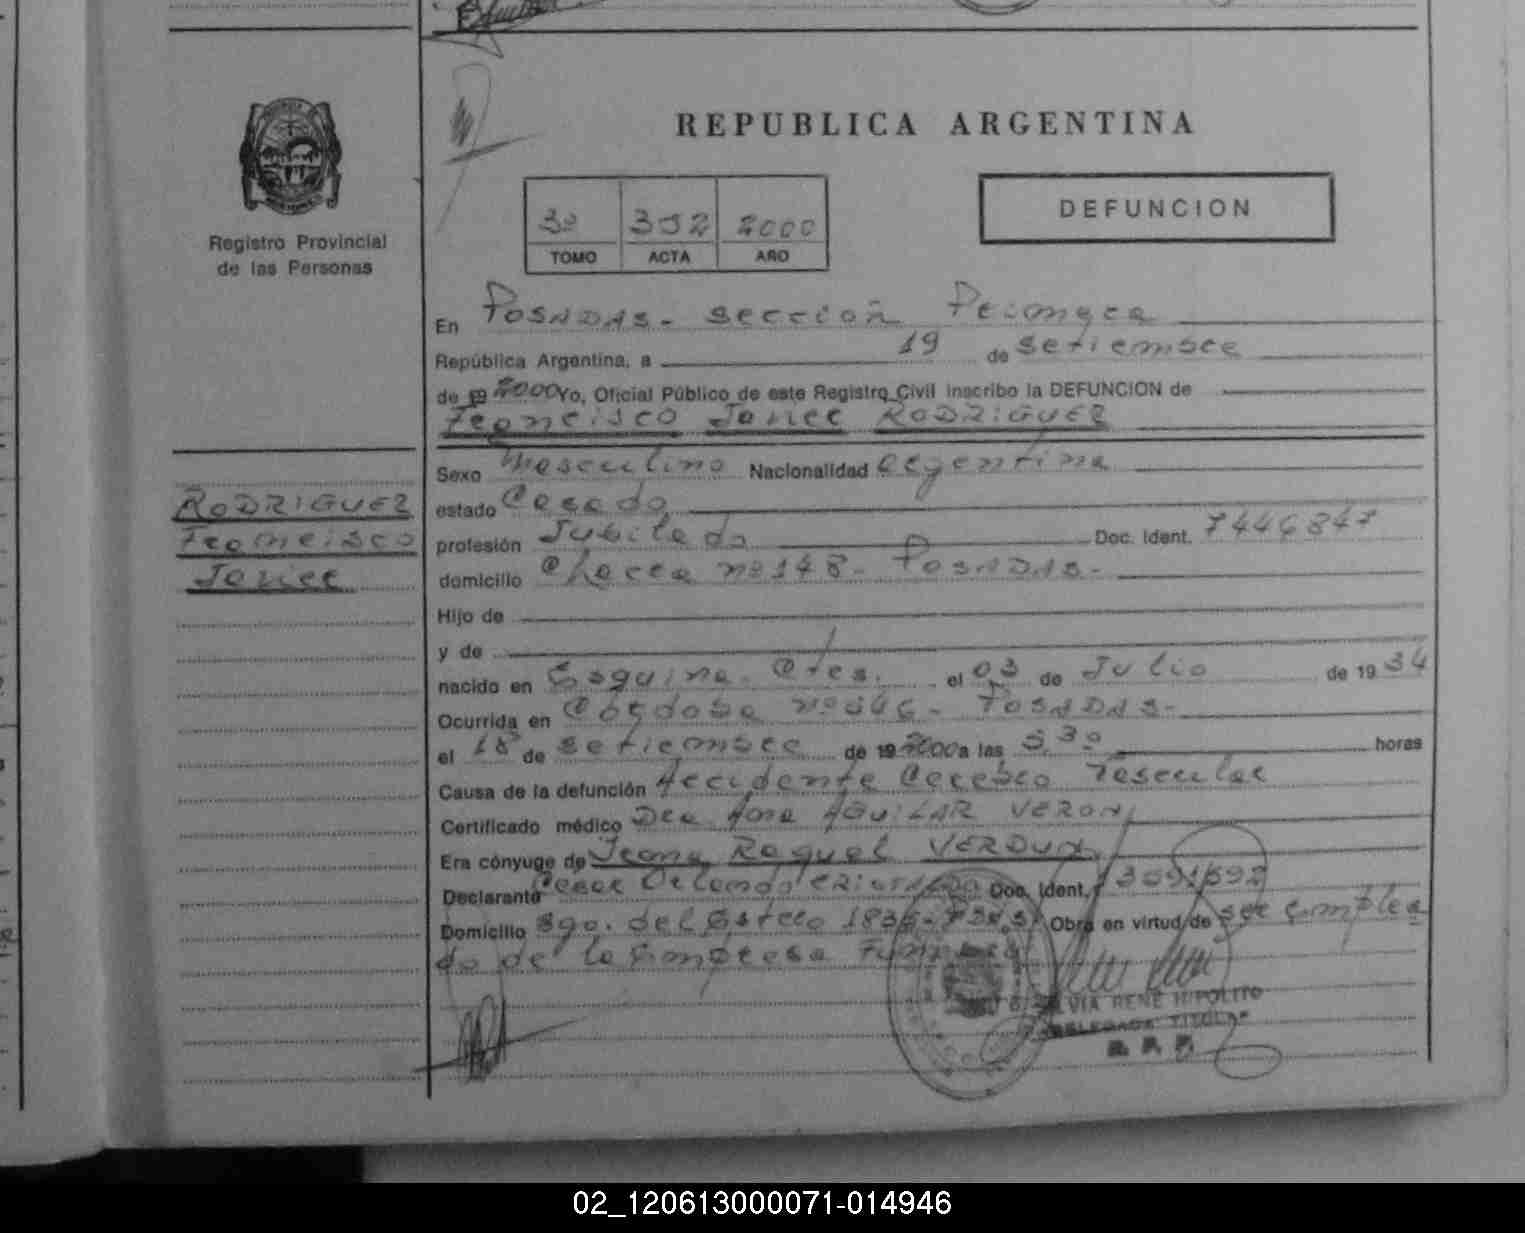 REPUBLICA ARGENTINA
Registro Provincial
de las Personas
3º 352 2000
TOMO ACTA AÑO
DEFUNCION
En POSADAS - Sección Primera
República Argentina, a 19 de setiembre
de 19 2000 Yo, Oficial Público de este Registro Civil inscribo la DEFUNCION de
Francisco Javier RODRIGUEZ
RODRIGUEZ
Francisco
Javier
Sexo Masculino Nacionalidad argentina
estado Casado
profesión Jubilado Doc. Ident. 7446847
domicilio Chacra nº 148 - POSADAS -
Hijo de
y de
nacido en Esquina. Ctes. el 03 de Julio de 19 34
Ocurrida en Córdoba nº POSADAS -
el 18 de setiembre de 19 2000 a las 5,30 horas
Causa de la defunción Accidente Cerebro Vascular
Certificado médico Dra Ana AGUILAR VERON
Era cónyuge de Juana Raquel
Declarante Cesar Orlando Doc. Ident.
Domicilio Sgo. del Estero Obra en virtud de ser emplea
do de la Empresa
SILVIA RENE HIPOLITO
DELEGADA TITULAR
R. P. P.
02_120613000071-014946